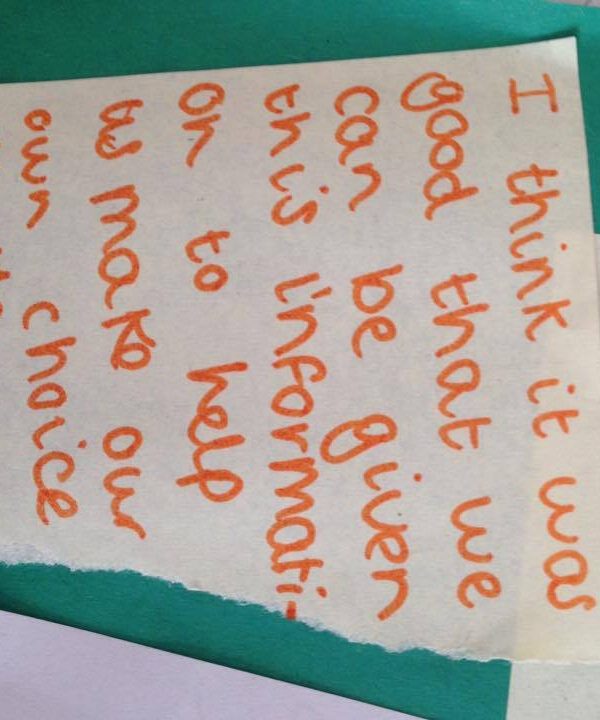 I think it was
good that we
can be given
this informati-
on to help
us make our
own choice